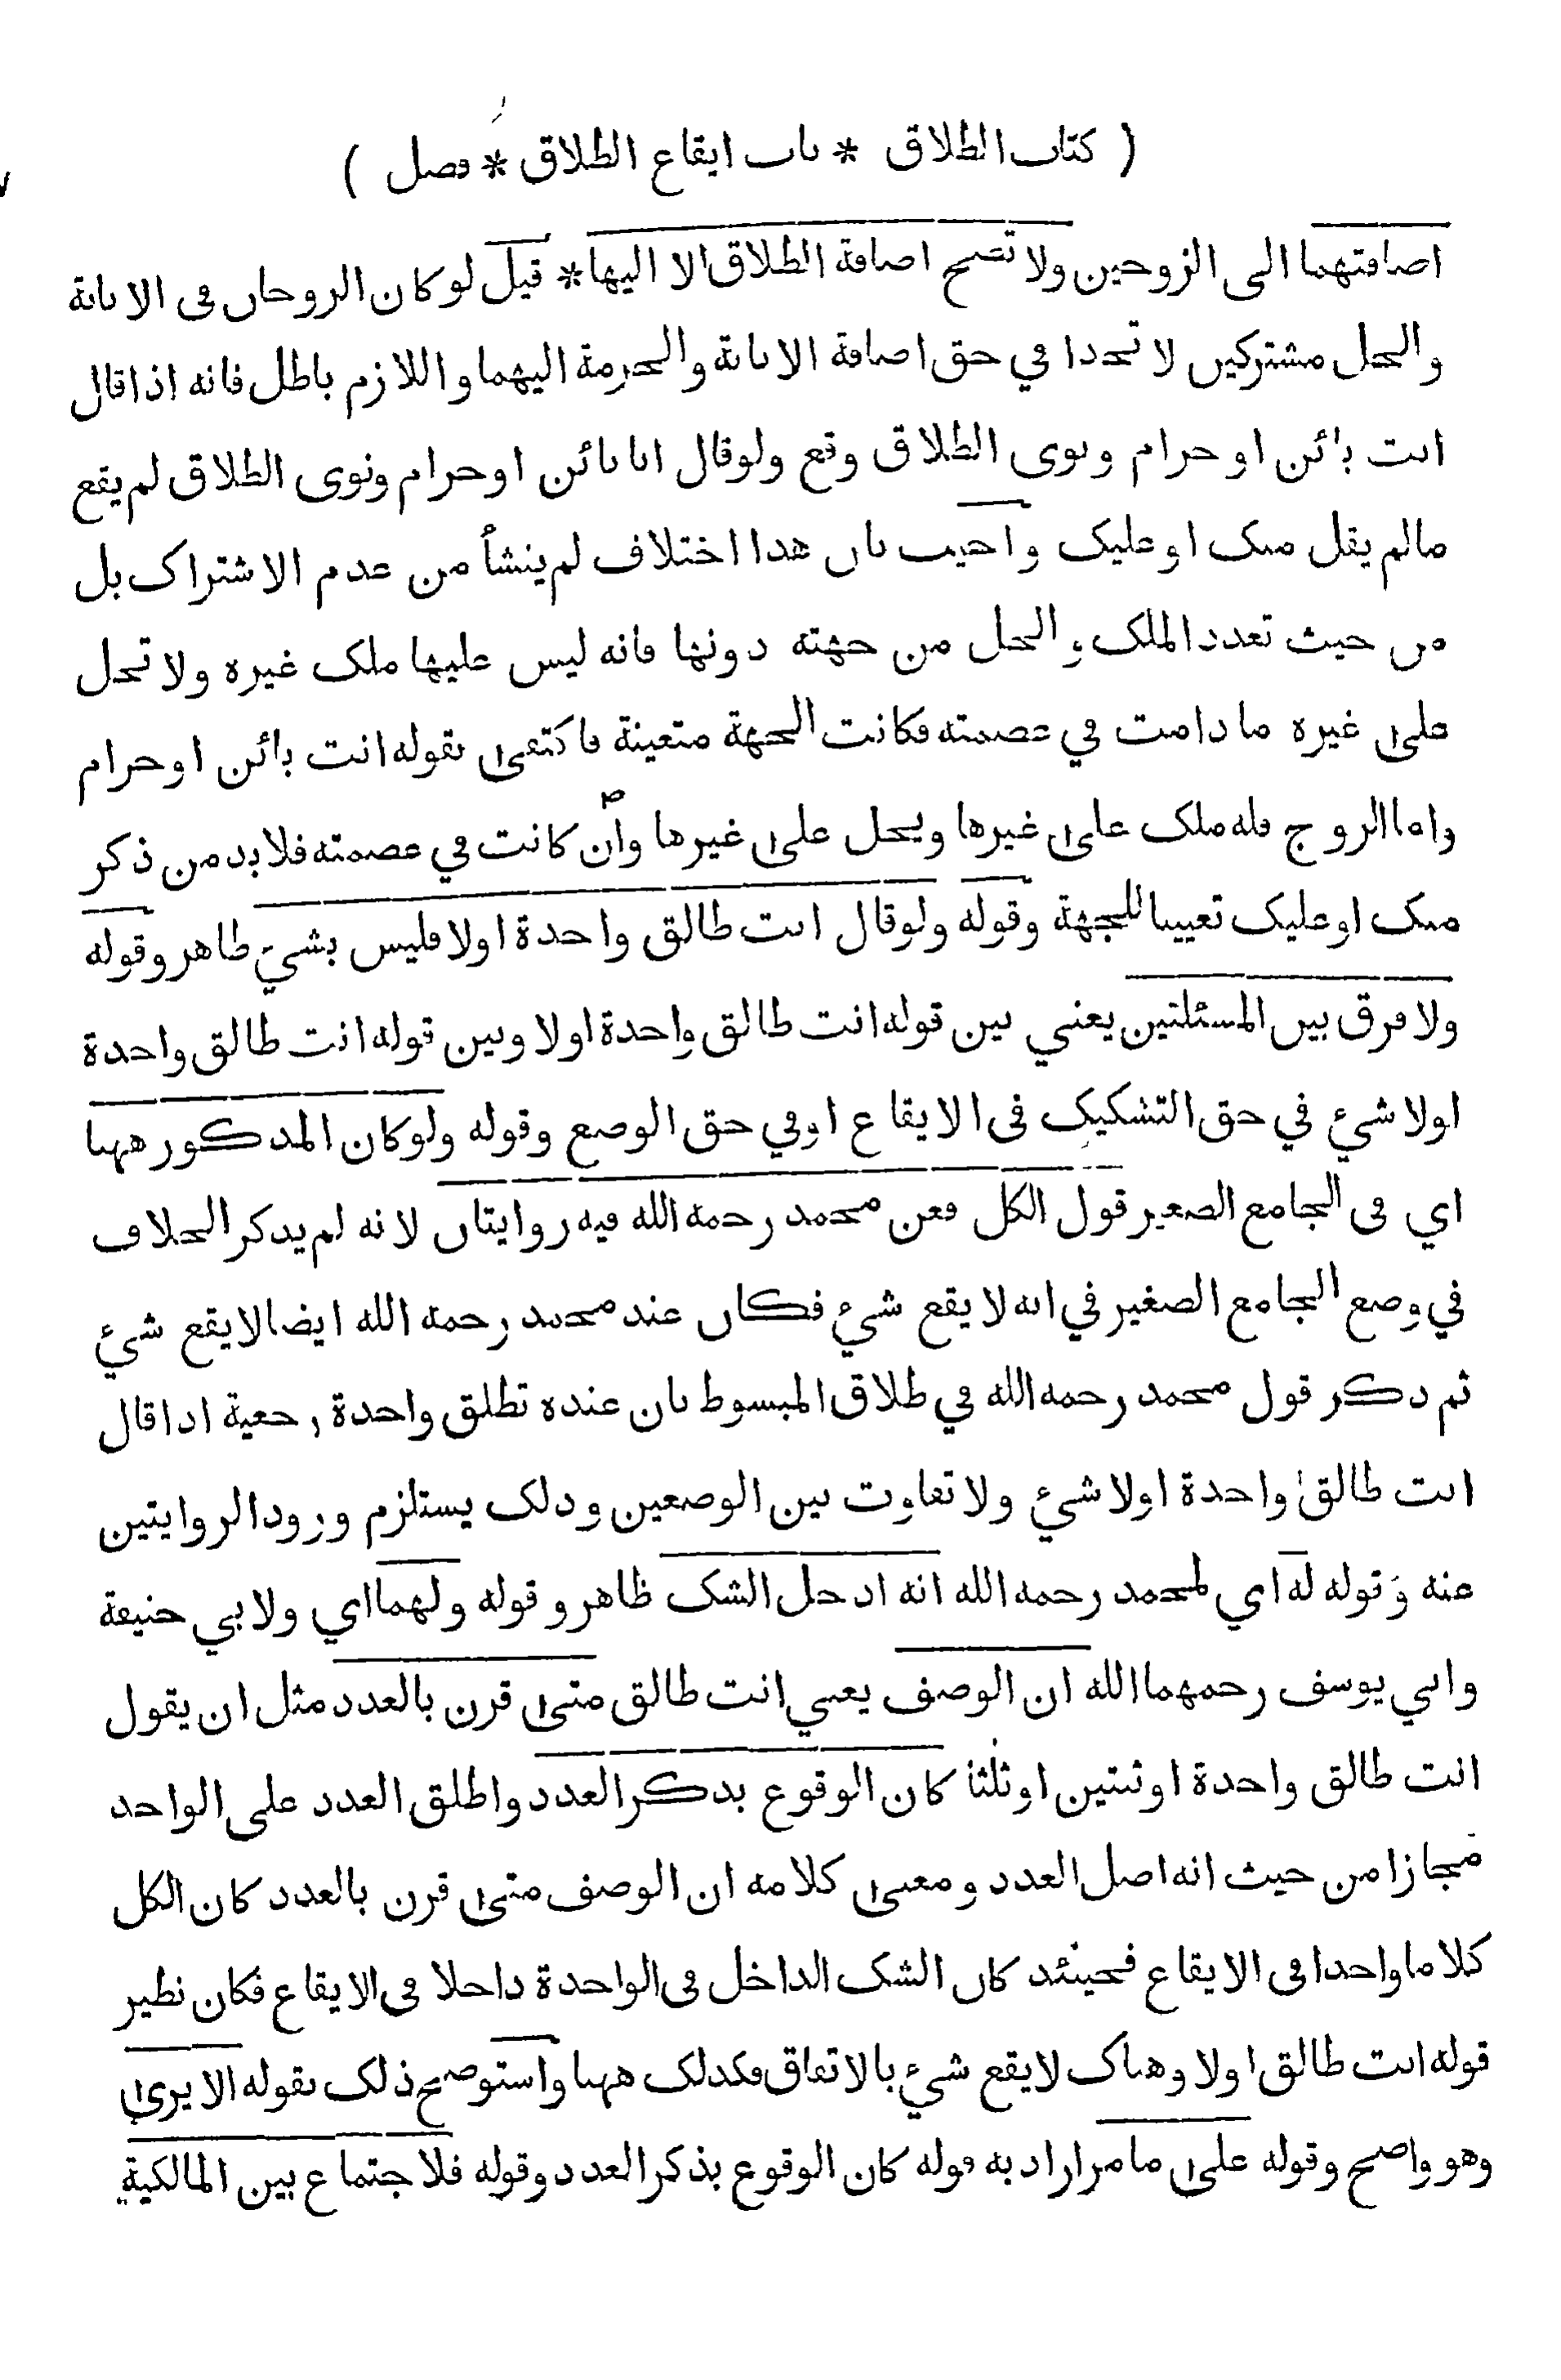 ( كتاب الطلاق * باب ايقاع الطلاق * فصل )
اضافتهما الى الزوجين ولا تصح اضافة الطلاق الا اليها * قيل لو كان الزوجان فى الابانة
والحل مشتركين لاتحدا في حق اضافة الابانة والحرمة اليهما واللازم باطل فانه اذا قال
انت بائن او حرام ونوى الطلاق وقع ولو قال انا بائن او حرام ونوى الطلاق لم يقع
مالم يقل منك او عليك واجيب بان هذا اختلاف لم ينشأ من عدم الاشتراك بل
من حيث تعدد الملك والحل من جهته دونها فانه ليس عليها ملك غيره ولا تحل
على غيره ما دامت في عصمته فكانت الجهة متعينة فاكتفى بقوله انت بائن او حرام
واما الزوج فله ملك على غيرها ويحل على غيرها وان كانت في عصمته فلا بد من ذكر
منك او عليك تعيينا للجهة وقوله ولو قال انت طالق واحدة اولا فليس بشئ ظاهر وقوله
ولا فرق بين المسئلتين يعني بين قوله انت طالق واحدة اولا وبين قوله انت طالق واحدة
اولا شئ في حق التشكيك فى الايقاع او في حق الوضع وقوله ولو كان المذكور ههنا
اي فى الجامع الصغير قول الكل فعن محمد رحمه الله فيه روايتان لانه لم يذكر الخلاف
في وضع الجامع الصغير في انه لا يقع شئ فكان عند محمد رحمه الله ايضا لا يقع شئ
ثم ذكر قول محمد رحمه الله في طلاق المبسوط بان عنده تطلق واحدة رجعية اذا قال
انت طالق واحدة اولا شئ ولا تفاوت بين الوضعين وذلك يستلزم ورود الروايتين
عنه وقوله له اي لمحمد رحمه الله انه ادخل الشك ظاهر وقوله ولهما اي ولابي حنيفة
وابي يوسف رحمهما الله ان الوصف يعني انت طالق متى قرن بالعدد مثل ان يقول
انت طالق واحدة او ثنتين او ثلثا كان الوقوع بذكر العدد واطلق العدد على الواحد
مجازا من حيث انه اصل العدد ومعنى كلامه ان الوصف متى قرن بالعدد كان الكل
كلاما واحدا فى الايقاع فحينئذ كان الشك الداخل فى الواحدة داخلا فى الايقاع فكان نظير
قوله انت طالق اولا وهناك لا يقع شئ بالاتفاق فكذلك ههنا واستوضح ذلك بقوله الا يرى
وهو واضح وقوله على ما مر اراد به قوله كان الوقوع بذكر العدد وقوله فلاجتماع بين المالكية